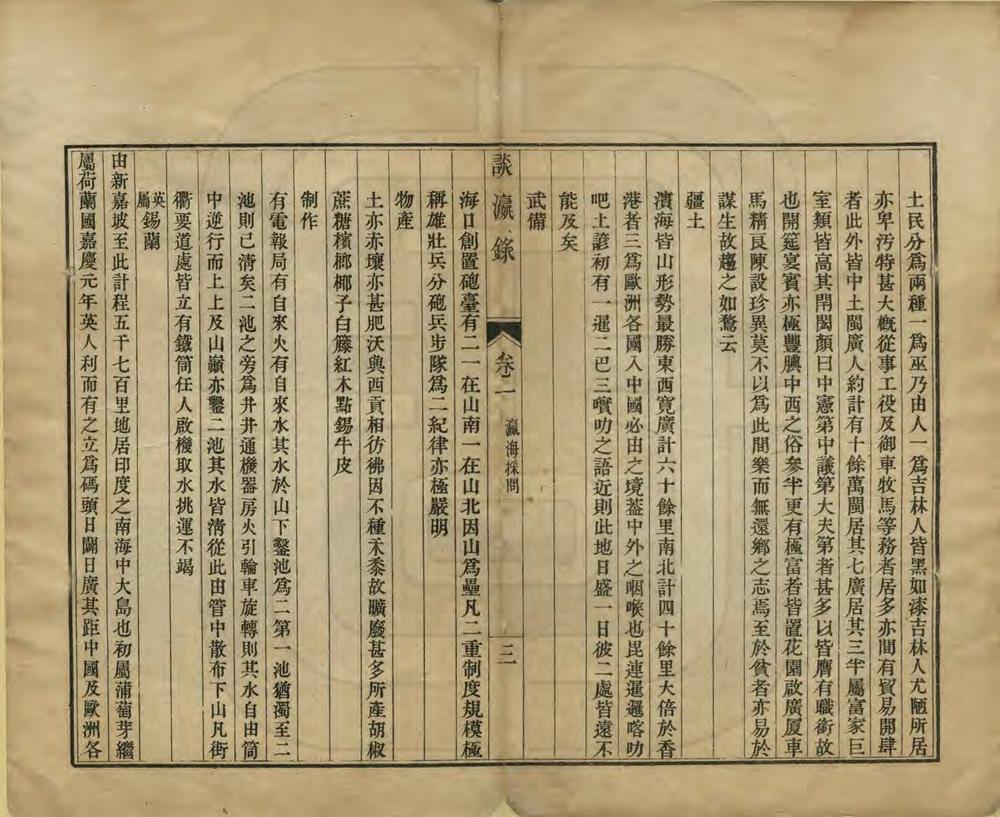 土民分爲兩種一爲巫乃由人一爲吉林人皆黑如漆吉林人尤陋所居
亦卑汚特甚大概從事工役及御車牧馬等務者居多亦間有貿易開肆
者此外皆中土閩廣人約計有十餘萬閩居其七廣居其三半屬富家巨
室類皆高其閈閎顏曰中憲第中議第大夫第者甚多以皆膺有職銜故
也開筵宴賓亦極豐腆中西之俗參半更有極富者皆置花園啟廣厦車
馬精良陳設珍異莫不以爲此間樂而無還鄉之志焉至於貧者亦易於
謀生故趨之如鶩云
疆土
濱海皆山形勢最勝東西寬廣計六十餘里南北計四十餘里大倍於香
港者三爲歐洲各國入中國必由之境蓋中外之咽喉也毘連暹邏喀叻
吧土諺初有一暹二巴三嗊叻之語近則此地日盛一日彼二處皆遠不
能及矣
武備
談瀛錄 卷一 瀛海採問 三
海口創置砲臺有二一在山南一在山北因山爲壘凡二重制度規模極
稱雄壯兵分砲兵步隊爲二紀律亦極嚴明
物產
土亦赤壤亦甚肥沃與西貢相彷彿因不種禾黍故曠廢甚多所產胡椒
蔗糖檳榔椰子白籐紅木點錫牛皮
制作
有電報局有自來火有自來水其水於山下鑿池爲二第一池猶濁至二
池則已淸矣二池之旁爲井井通機器房火引輪車旋轉則其水自由筒
中逆行而上上及山巔亦鑿二池其水皆淸從此由管中散布下山凡街
衢要道處皆立有鐵筒任人啟機取水挑運不竭
英屬錫蘭
由新嘉坡至此計程五千七百里地居印度之南海中大島也初屬蒲萄芽繼
屬荷蘭國嘉慶元年英人利而有之立爲碼頭日闢日廣其距中國及歐洲各